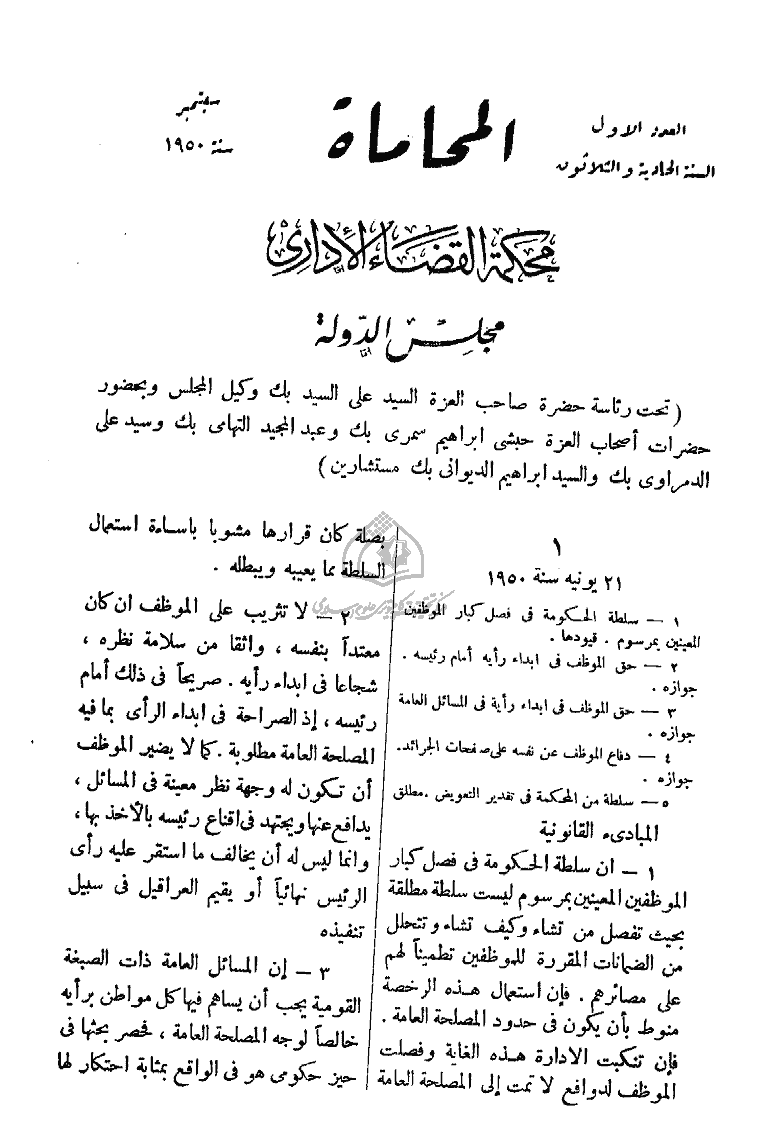 العدد الاول
السنة الحادية والثلاثون
المحاماة
سبتمبر
سنة ١٩٥٠
محكمة القضاء الإدارى
مجلس الدولة
( تحت رئاسة حضرة صاحب العزة السيد على السيد بك وكيل المجلس وبحضور
حضرات أصحاب العزة حبشى ابراهيم سمرى بك وعبد المجيد التهامى بك وسيد على
الدمراوى بك والسيد ابراهيم الديوانى بك مستشارين )
١
٢١ يونيه سنة ١٩٥٠
١ — سلطة الحكومة فى فصل كبار الموظفين
المعينين بمرسوم . قيودها .
٢ — حق الموظف فى ابداء رأيه أمام رئيسه .
جوازه .
٣ — حق الموظف فى ابداء رأية فى المسائل العامة
جوازه .
٤ — دفاع الموظف عن نفسه على صفحات الجرائد.
جوازه .
٥ — سلطة من المحكمة فى تقدير التعويض . مطلق
المبادىء القانونية
١ — ان سلطة الحكومة فى فصل كبار
الموظفين المعينين بمرسوم ليست سلطة مطلقة
بحيث تفصل من تشاء وكيف تشاء وتتحلل
من الضمانات المقررة للموظفين تطميناً لهم
على مصائرهم . فإن استعمال هذه الرخصة
منوط بأن يكون فى حدود المصلحة العامة .
فإن تنكبت الادارة هذه الغاية وفصلت
الموظف لدوافع لا تمت إلى المصلحة العامة
بصلة كان قرارها مشوبا باساءة استعمال
السلطة مما يعيبه ويبطله .
٢ — لا تثريب على الموظف ان كان
معتداً بنفسه ، واثقا من سلامة نظره ،
شجاعا فى ابداء رأيه . صريحاً فى ذلك أمام
رئيسه ، إذ الصراحة فى ابداء الرأى بما فيه
المصلحة العامة مطلوبة . كما لا يضير الموظف
أن تكون له وجهة نظر معينة فى المسائل ،
يدافع عنها ويجتهد فى اقناع رئيسه بالأخذ بها ،
وانما ليس له أن يخالف ما استقر عليه رأى
الرئيس نهائياً أو يقيم العراقيل فى سبيل
تنفيذه
٣ — إن المسائل العامة ذات الصبغة
القومية يجب أن يساهم فيها كل مواطن برأيه
خالصاً لوجه المصلحة العامة ، فحصر بحثها فى
حيز حكومى هو فى الواقع بمثابة احتكار لها